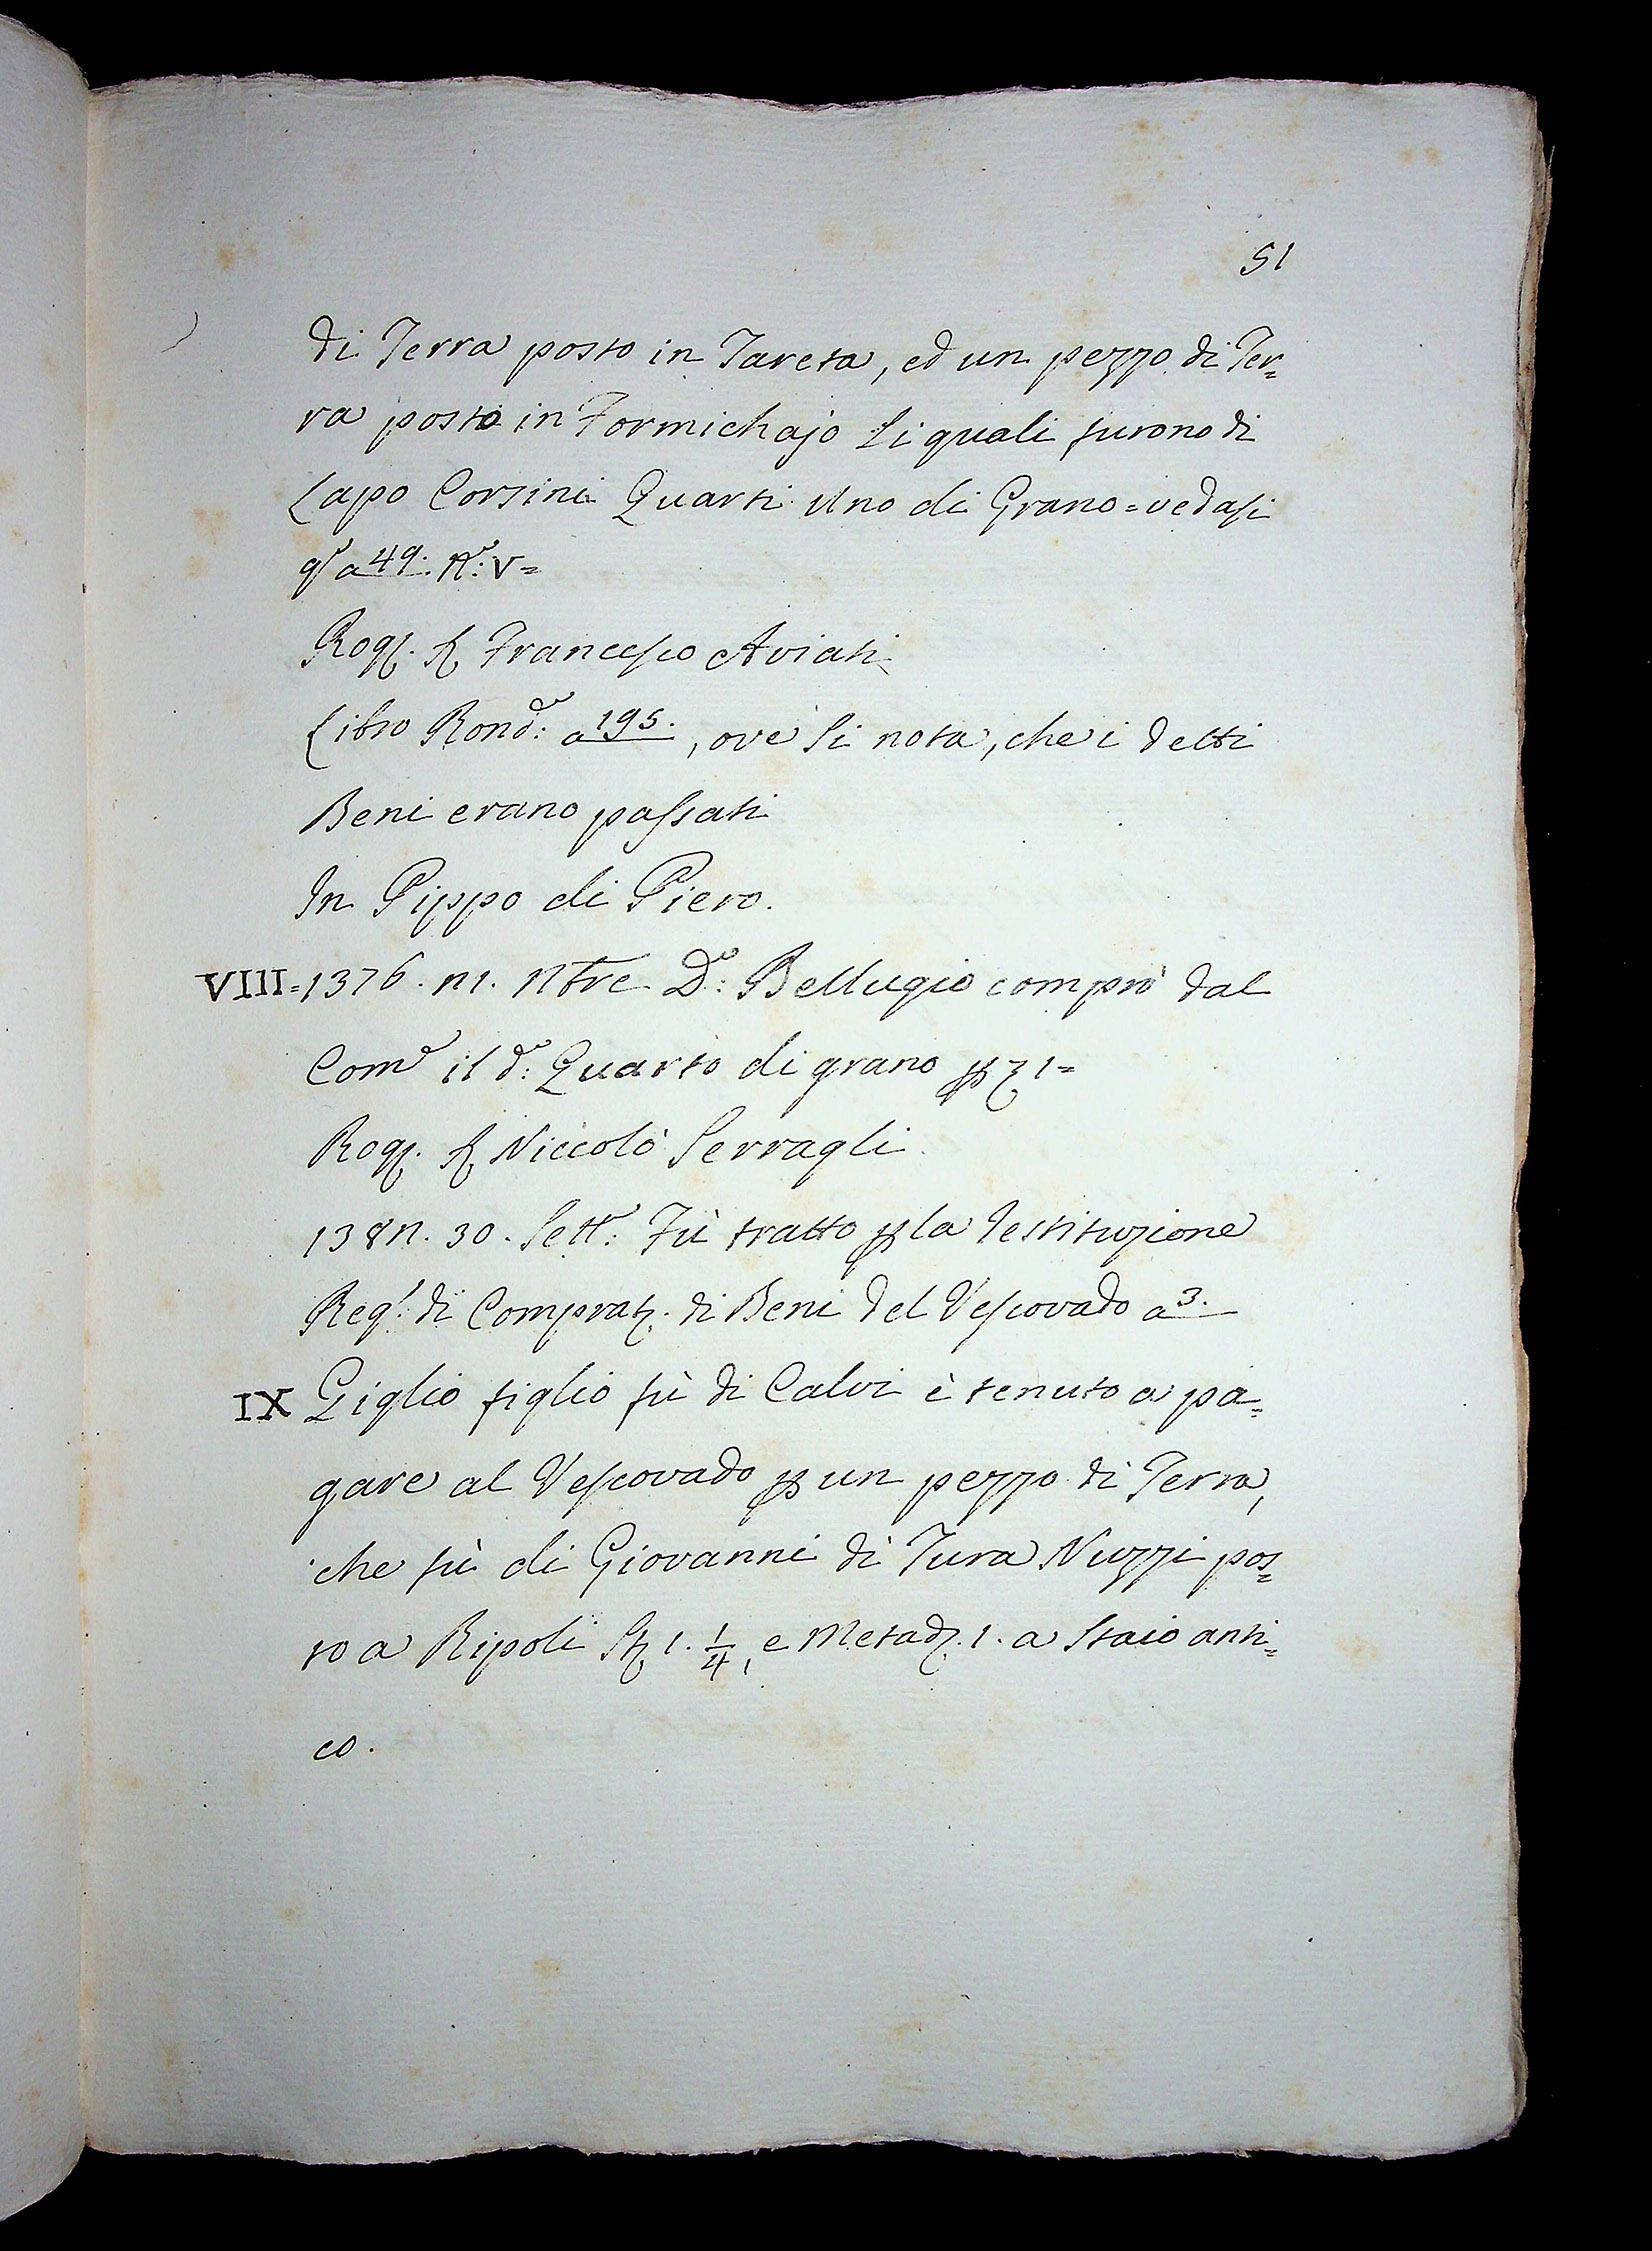 51
di Terra posto in Tareta, ed un pezzo di Ter=
ra posto in Formichajo li quali furono di
Lapo Corsini Quarti Uno di Grano = vedasi
a 49. N.º: V =
Rog. S. Francesco Aviati
Libro Rond.º: a 195., ove si nota, che i detti
Beni erano passati
In Pippo di Piero.
VIII = 1376. 11. Nbre D.º: Bellugio comprò dal
Com.e il d.º: Quarto di grano p 1 =
Rog. S. Niccolò Serragli
1382. 30. Sett.e: Fù tratto p la Testituzione
Reg.º di Comprat. di Beni del Vescovado a 3.
IX Giglio figlio fù di Calvi è tenuto a pa=
gare al Vescovado p un pezzo di Terra,
che fù di Giovanni di Tura Nuzzi pos=
to a Ripoli St. 1. 1/4, e Metad. 1. a Staio anti=
co.